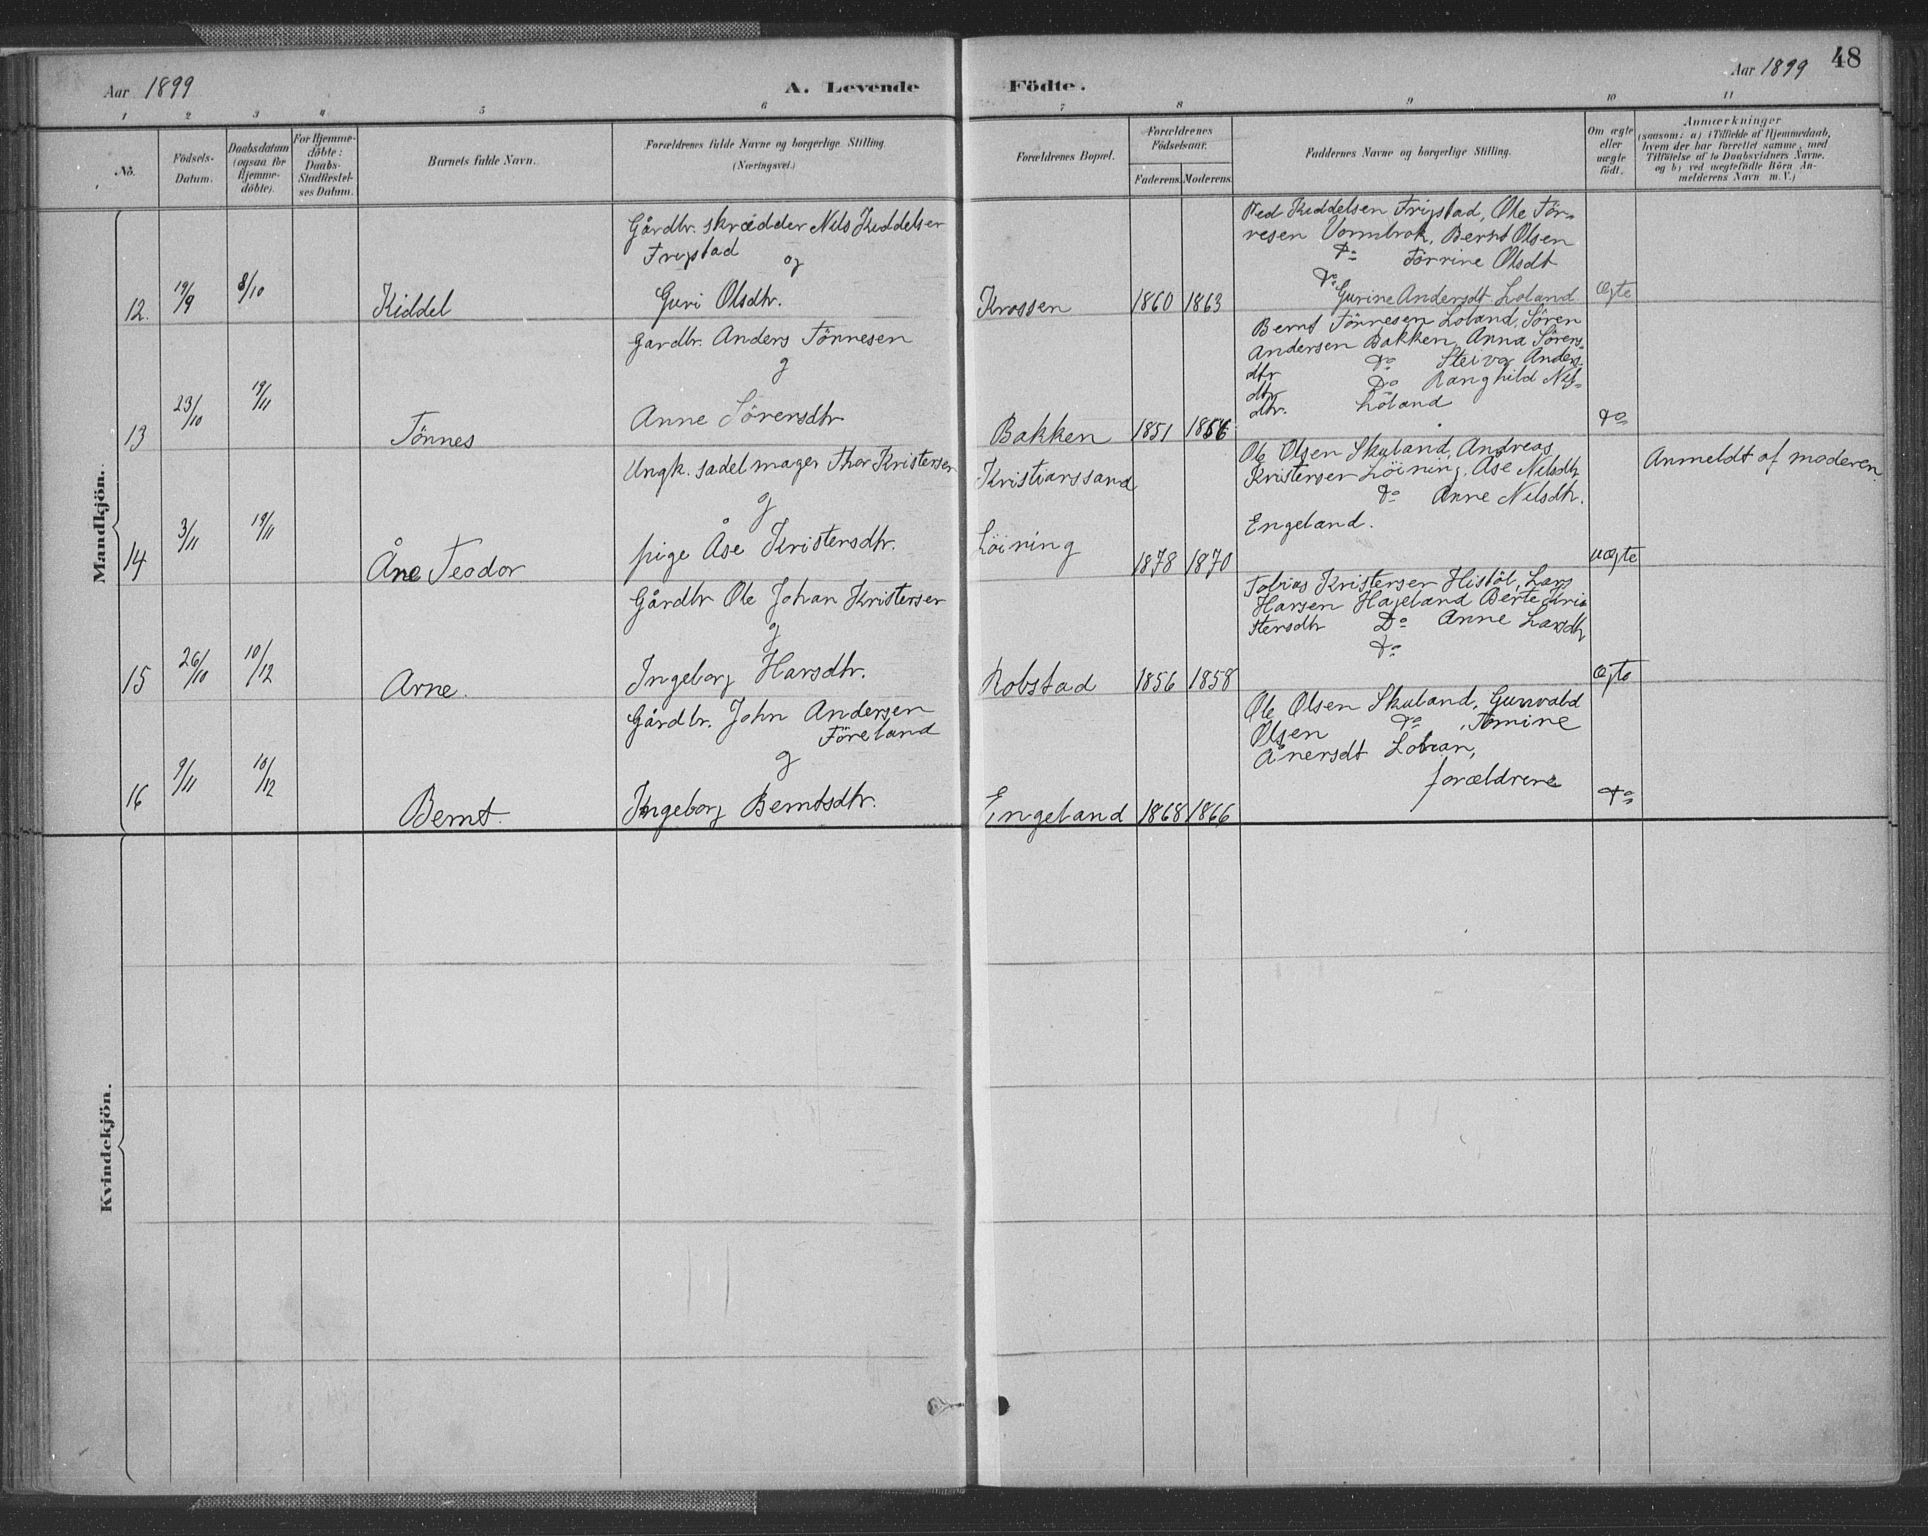 Aar 1899
A. Levende Födte.
Aar 1899
48
1 2 3 4 5 6 7 8 9 10 11
No.
Födsels-Datum.
Daabsdatum (ogsaa for Hjemme-döbte).
For Hjemme-döbte: Daabs-Stadfæstel-ses Datum.
Barnets fulde Navn.
Forældrenes fulde Navne og borgerlige Stilling (Næringsvei.)
Forældrenes Bopæl.
Forældrenes Födselsaar.
Faderens. Moderens.
Faddernes Navne og borgerlige Stilling.
Om ægte eller uægte födt.
Anmærkninger
(saasom: a) i Tilfælde af Hjemmedaab,
hvem der har forrettet samme, med
Tilföielse af to Daabsvidners Navne,
og b) ved uægtefödte Börn An-
melderens Navn m. V.)
Mandkjön.
12. 19/9 8/10 Kiddel
Gårdbr. skrædder Nils Kiddelsen
Frigstad og
Guri Olsdtr.
Krossen 1860 1863
Ped Kiddelsen Frigstad, Ole Tön-
nesen Vormbrok, Bernt Olsen
Do Tönnine Olsdt
Do Gurine Andersdt Loland
Ægte
13 23/10 19/11 Tönnes
Gardbr. Anders Tönnesen
og
Anne Sörensdtr
Bakken 1851 1856
Bernt Tönnesen Loland, Sören
Andersen Bakken, Anna Sörens-
dtr Do Steiva Anders-
dtr Do Ranghild Nils-
dtr. Löland
Do
14 3/11 19/11 Åne Teodor
Ungk. sadelmager Thor Kristensen
og
pige Åse Kristensdtr.
Kristianssand
Löining 1878 1870
Ole Olsen Skuland, Andreas
Kristensen Löining, Åse Nilsdtr
Do Anne Nilsdtr.
Engeland.
uægte
Anmeldt af moderen
15 26/10 10/12 Arne.
Gårdbr Ole Johan Kristensen
og
Ingeborg Hansdtr.
Robstad 1856 1858
Tobias Kristensen Histöl, Lars
Hansen Hageland Berte Kri-
stensdtr Do Anne Larsdtr
Do
Ægte
16 9/11 10/12 Bernt.
Gårdbr. John Andersen
Föreland
og
Ingeborg Berntsdtr.
Engeland 1868 1866
Ole Olsen Skuland, Gunvald
Olsen Do, Tomine
Ånensdt
forældrene
Do
Kvindekjön.